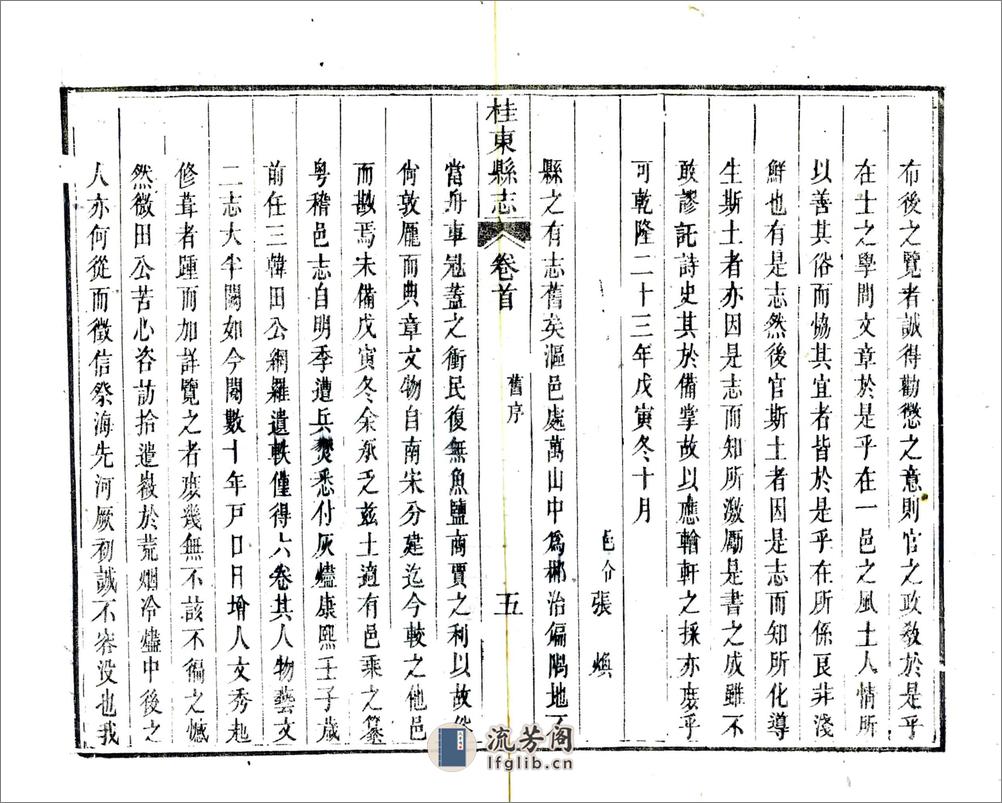 布後之覽者誠得勸懲之意則官之政教於是乎
在士之學問文章於是乎在一邑之風土人情所
以善其俗而恊其宜者皆於是乎在所係良非淺
鮮也有是志然後官斯土者因是志而知所化導
生斯土者亦因是志而知所激勵是書之成雖不
敢謬託詩史其於備掌故以應輶軒之採亦庶乎
可乾隆二十三年戊寅冬十月
邑令張煥
縣之有志舊矣漚邑處萬山中爲郴治偏隅地不
桂東縣志 卷首 舊序 五
當舟車冠蓋之衝民復無魚鹽商賈之利以故俗
尙敦龐而典章文物自南宋分建迄今較之他邑
而散焉未備戊寅冬余承乏茲土適有邑乘之纂
粤稽邑志自明季遭兵燹悉付灰燼康熙壬子歲
前任三韓田公網羅遺軼僅得六卷其人物藝文
二志大半闕如今閱數十年戸口日增人文秀起
修葺者踵而加詳覽之者庶幾無不該不徧之憾
然微田公苦心咨訪拾遺於荒烟冷燼中後之
人亦何從而徵信祭海先河厥初誠不容没也我
流芳阁
lfglib.cn